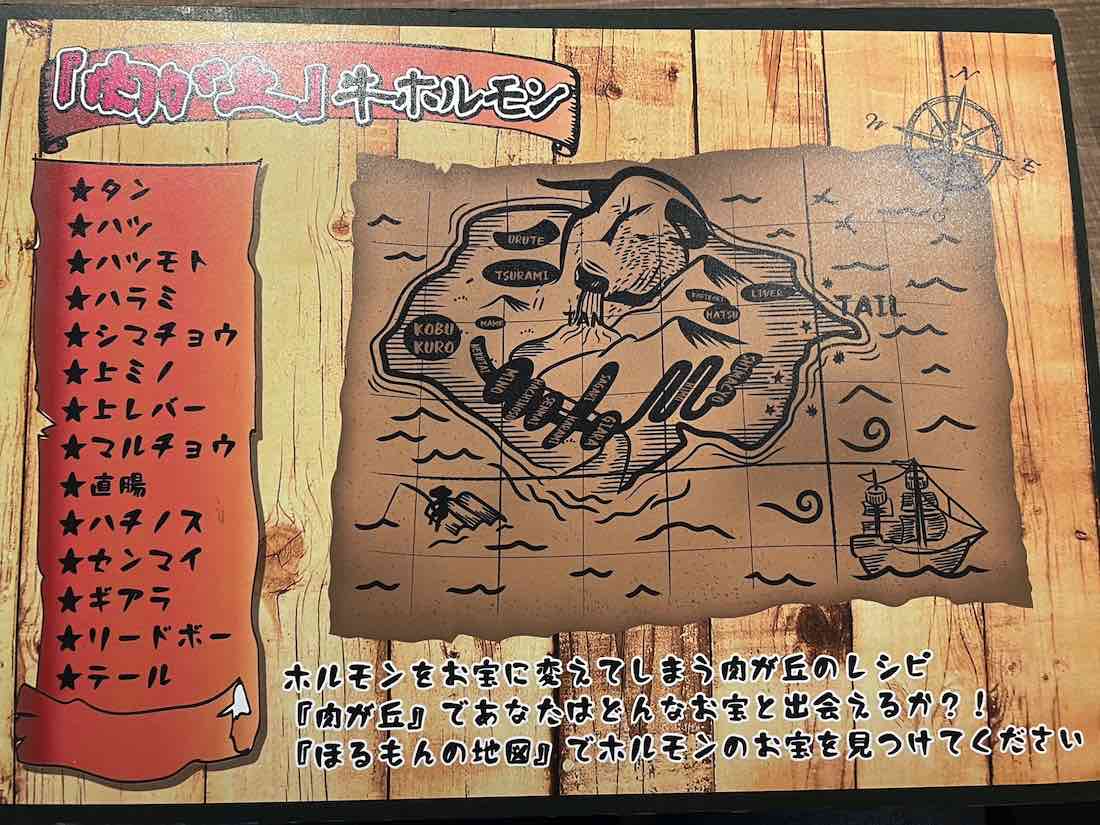 『肉が丘』牛ホルモン
★タン
★ハツ
★ハツモト
★ハラミ
★シマチョウ
★上ミノ
★上レバー
★マルチョウ
★直腸
★ハチノス
★センマイ
★ギアラ
★リードボー
★テール
N
W
E
URUTE
TSURAMI
LIVER
HATSU
TAIL
KOBU
KURO
MAME
NEKUTAI
MINO
HACHINOSU
SENMAI
SAGARI
HARAMI
GIARA
ホルモンをお宝に変えてしまう肉が丘のレシピ
『肉が丘』であなたはどんなお宝と出会えるか?!
『ほるもんの地図』でホルモンのお宝を見つけてください